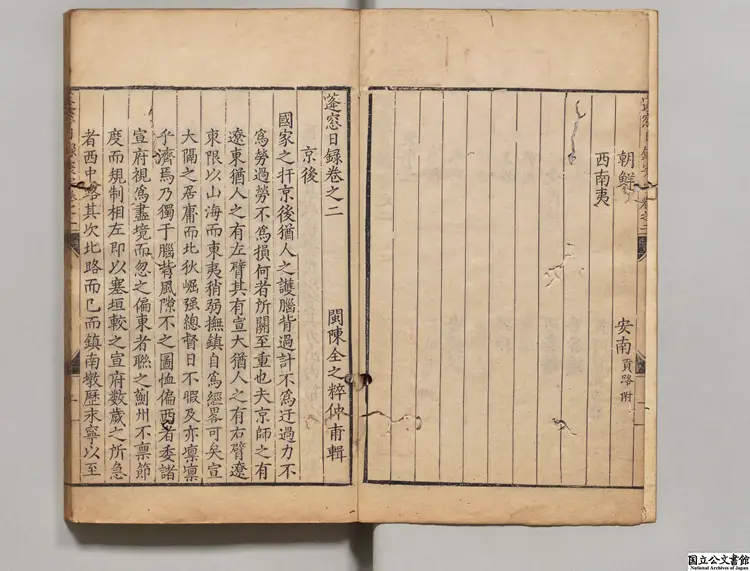 朝鮮 安南貢路附
西南夷
蓬窓日録卷之二
京後 閩陳全之粹仲甫輯
國家之扞京後猶人之護腦背過計不爲迂過力不
爲勞過勞不爲損何者所關至重也夫京師之有
遼東猶人之有左臂其有宣大猶人之有右臂遼
東限以山海而東夷稍弱撫鎮自爲經畧可矣宣
大隔之居庸而北狄崛强總督日不暇及亦凛凛
乎濟焉乃獨于腦背風隙不之圖恤偏西者委諸
宣府視爲盡境而忽之偏東者聮之薊州不禀節
度而規制相左即以塞垣較之宣府數歲之所急
者西中路其次北路而已而鎮南墩歷永寧以至
国立公文書館
National Archives of Japan